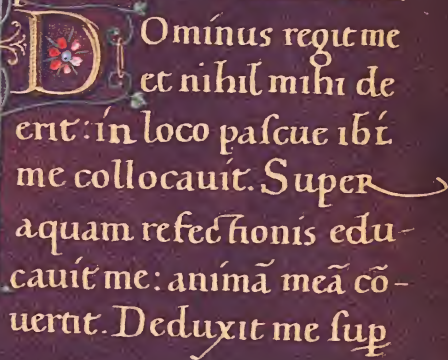 Dominus regit me
et nihil mihi de
erit: in loco paſcue ibi
me collocauit. Super
aquam refectionis edu-
cauit me: animã meã cõ-
uertit. Deduxit me ſup